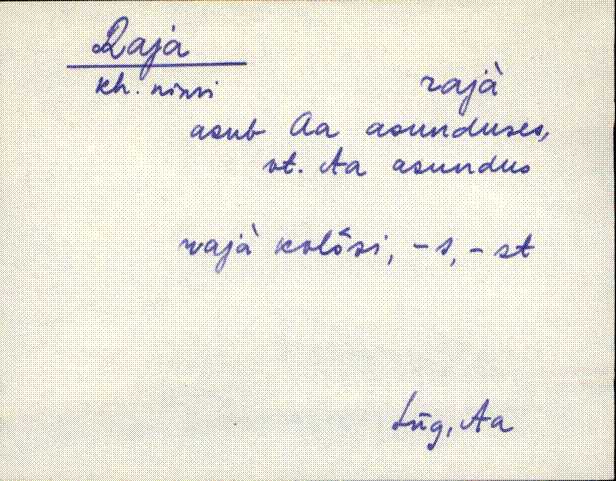 Raja
kh. nimi
rajà
asub Aa asunduses,
vt. Aa asundus
rajà kolósi, -s, -st
Lüg, Aa